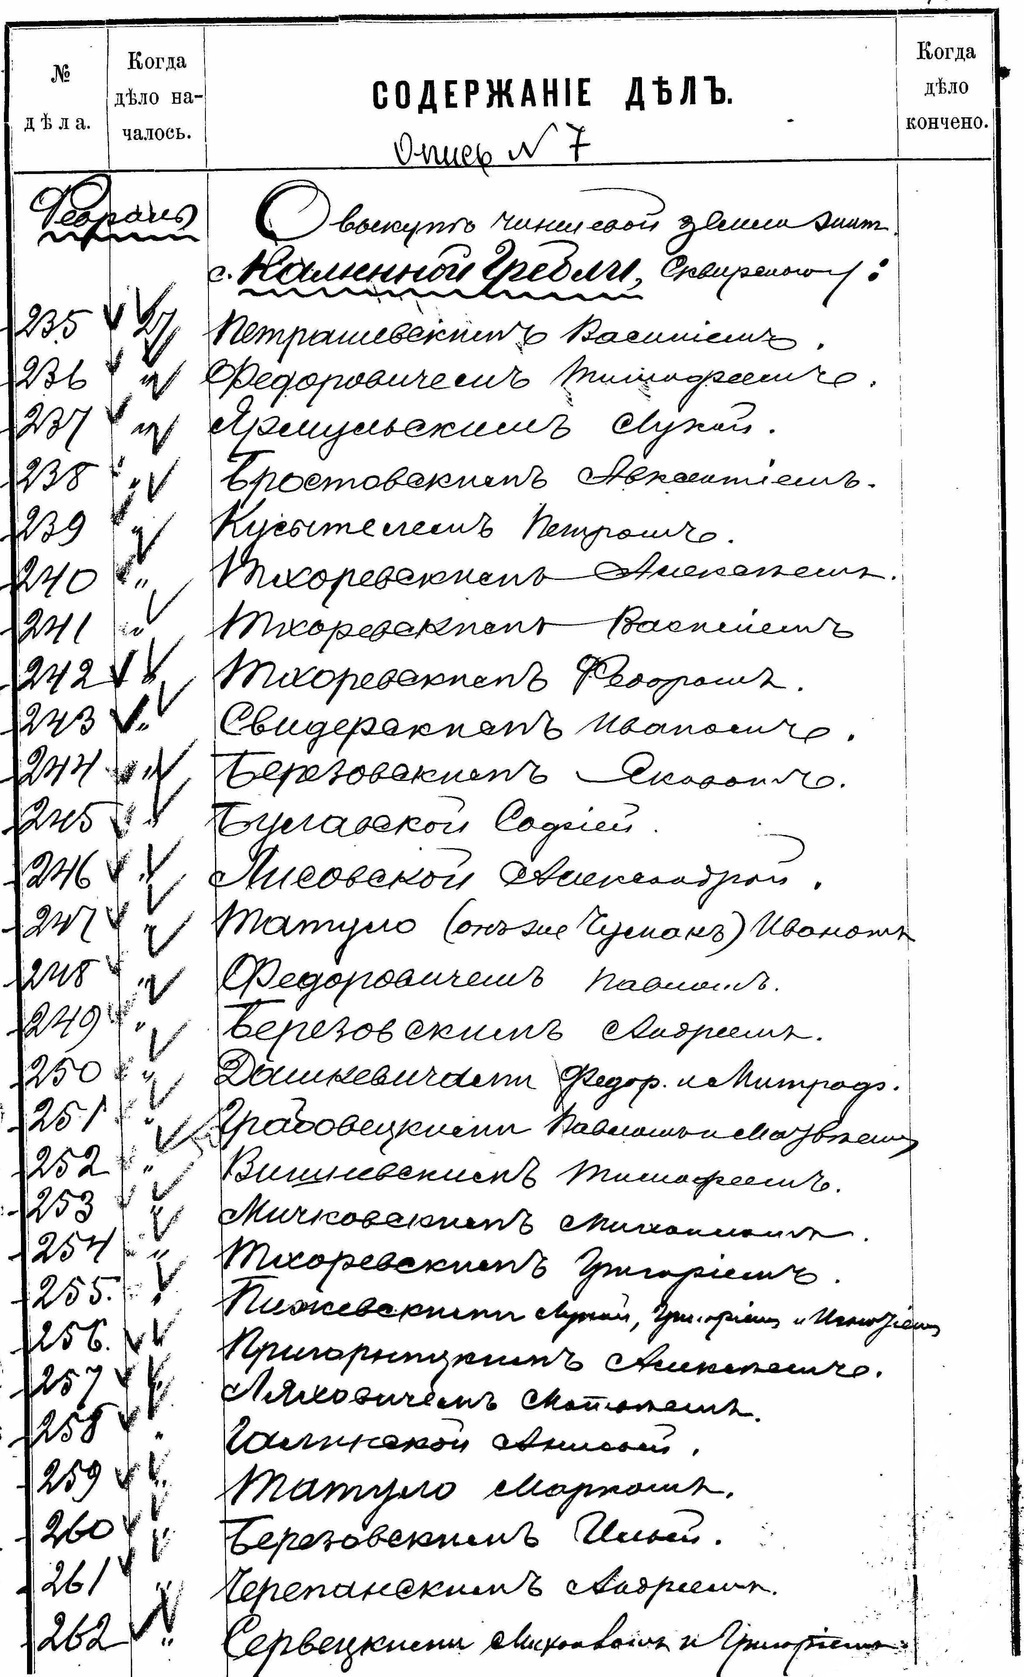 № дѣла.
Когда дѣло началось.
СОДЕРЖАНІЕ ДѢЛЪ.
Когда дѣло кончено.
Опись N 7
Февраль
О выкупѣ чиншевой земли
с. Каменной Гребли, Сквирскаго у:
235 27 Петрашевскимъ Василіемъ.
236 " Федоровичемъ Тимофеемъ.
237 " Ярмульскимъ Лукой.
238 " Бростовскимъ Авксентіемъ.
239 " Петромъ.
240 " Тхоревскимъ Алексѣемъ.
241 " Тхоревскимъ Василіемъ
242 " Тхоревскимъ Федоромъ.
243 " Свидерскимъ Иваномъ.
244 " Березовскимъ Яковомъ.
245 " Булавской Софіей.
246 " Лисовской Александрой.
247 " Татуло (онъ же Чусманъ) Иваномъ
248 " Федоровичемъ Павломъ.
249 " Березовскимъ Андреемъ.
250 " Дашкевичами Федор. и Митроф.
251 " Грабовецкими Павломъ и Матвѣемъ
252 " Вишневскимъ Тимофеемъ.
253 " Мичковскимъ Михаиломъ.
254 " Тхоревскимъ Григоріемъ.
255. " Пижевскими Лукой, Григоріемъ и Игнатіемъ
256. " Алексѣемъ.
257 " Ляховичемъ Матвѣемъ.
258 " Галинской Анисьей.
259 " Татуло Маркомъ.
260 " Березовскимъ Ильей.
261 " Черепанскимъ Андреемъ.
262 " Сервецкими и Григоріемъ